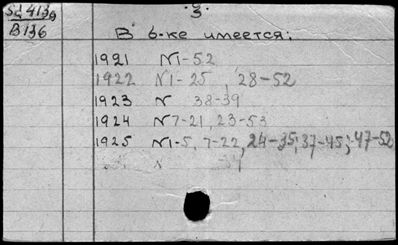 ·3·
В 136
В б-ке имеется:
1921 N1-52
1922 N1-25, 28-52
1923 N 38-39
1924 N7-21, 23-53
1925 N1-5, 7-22, 24-35; 37-45; 47-52